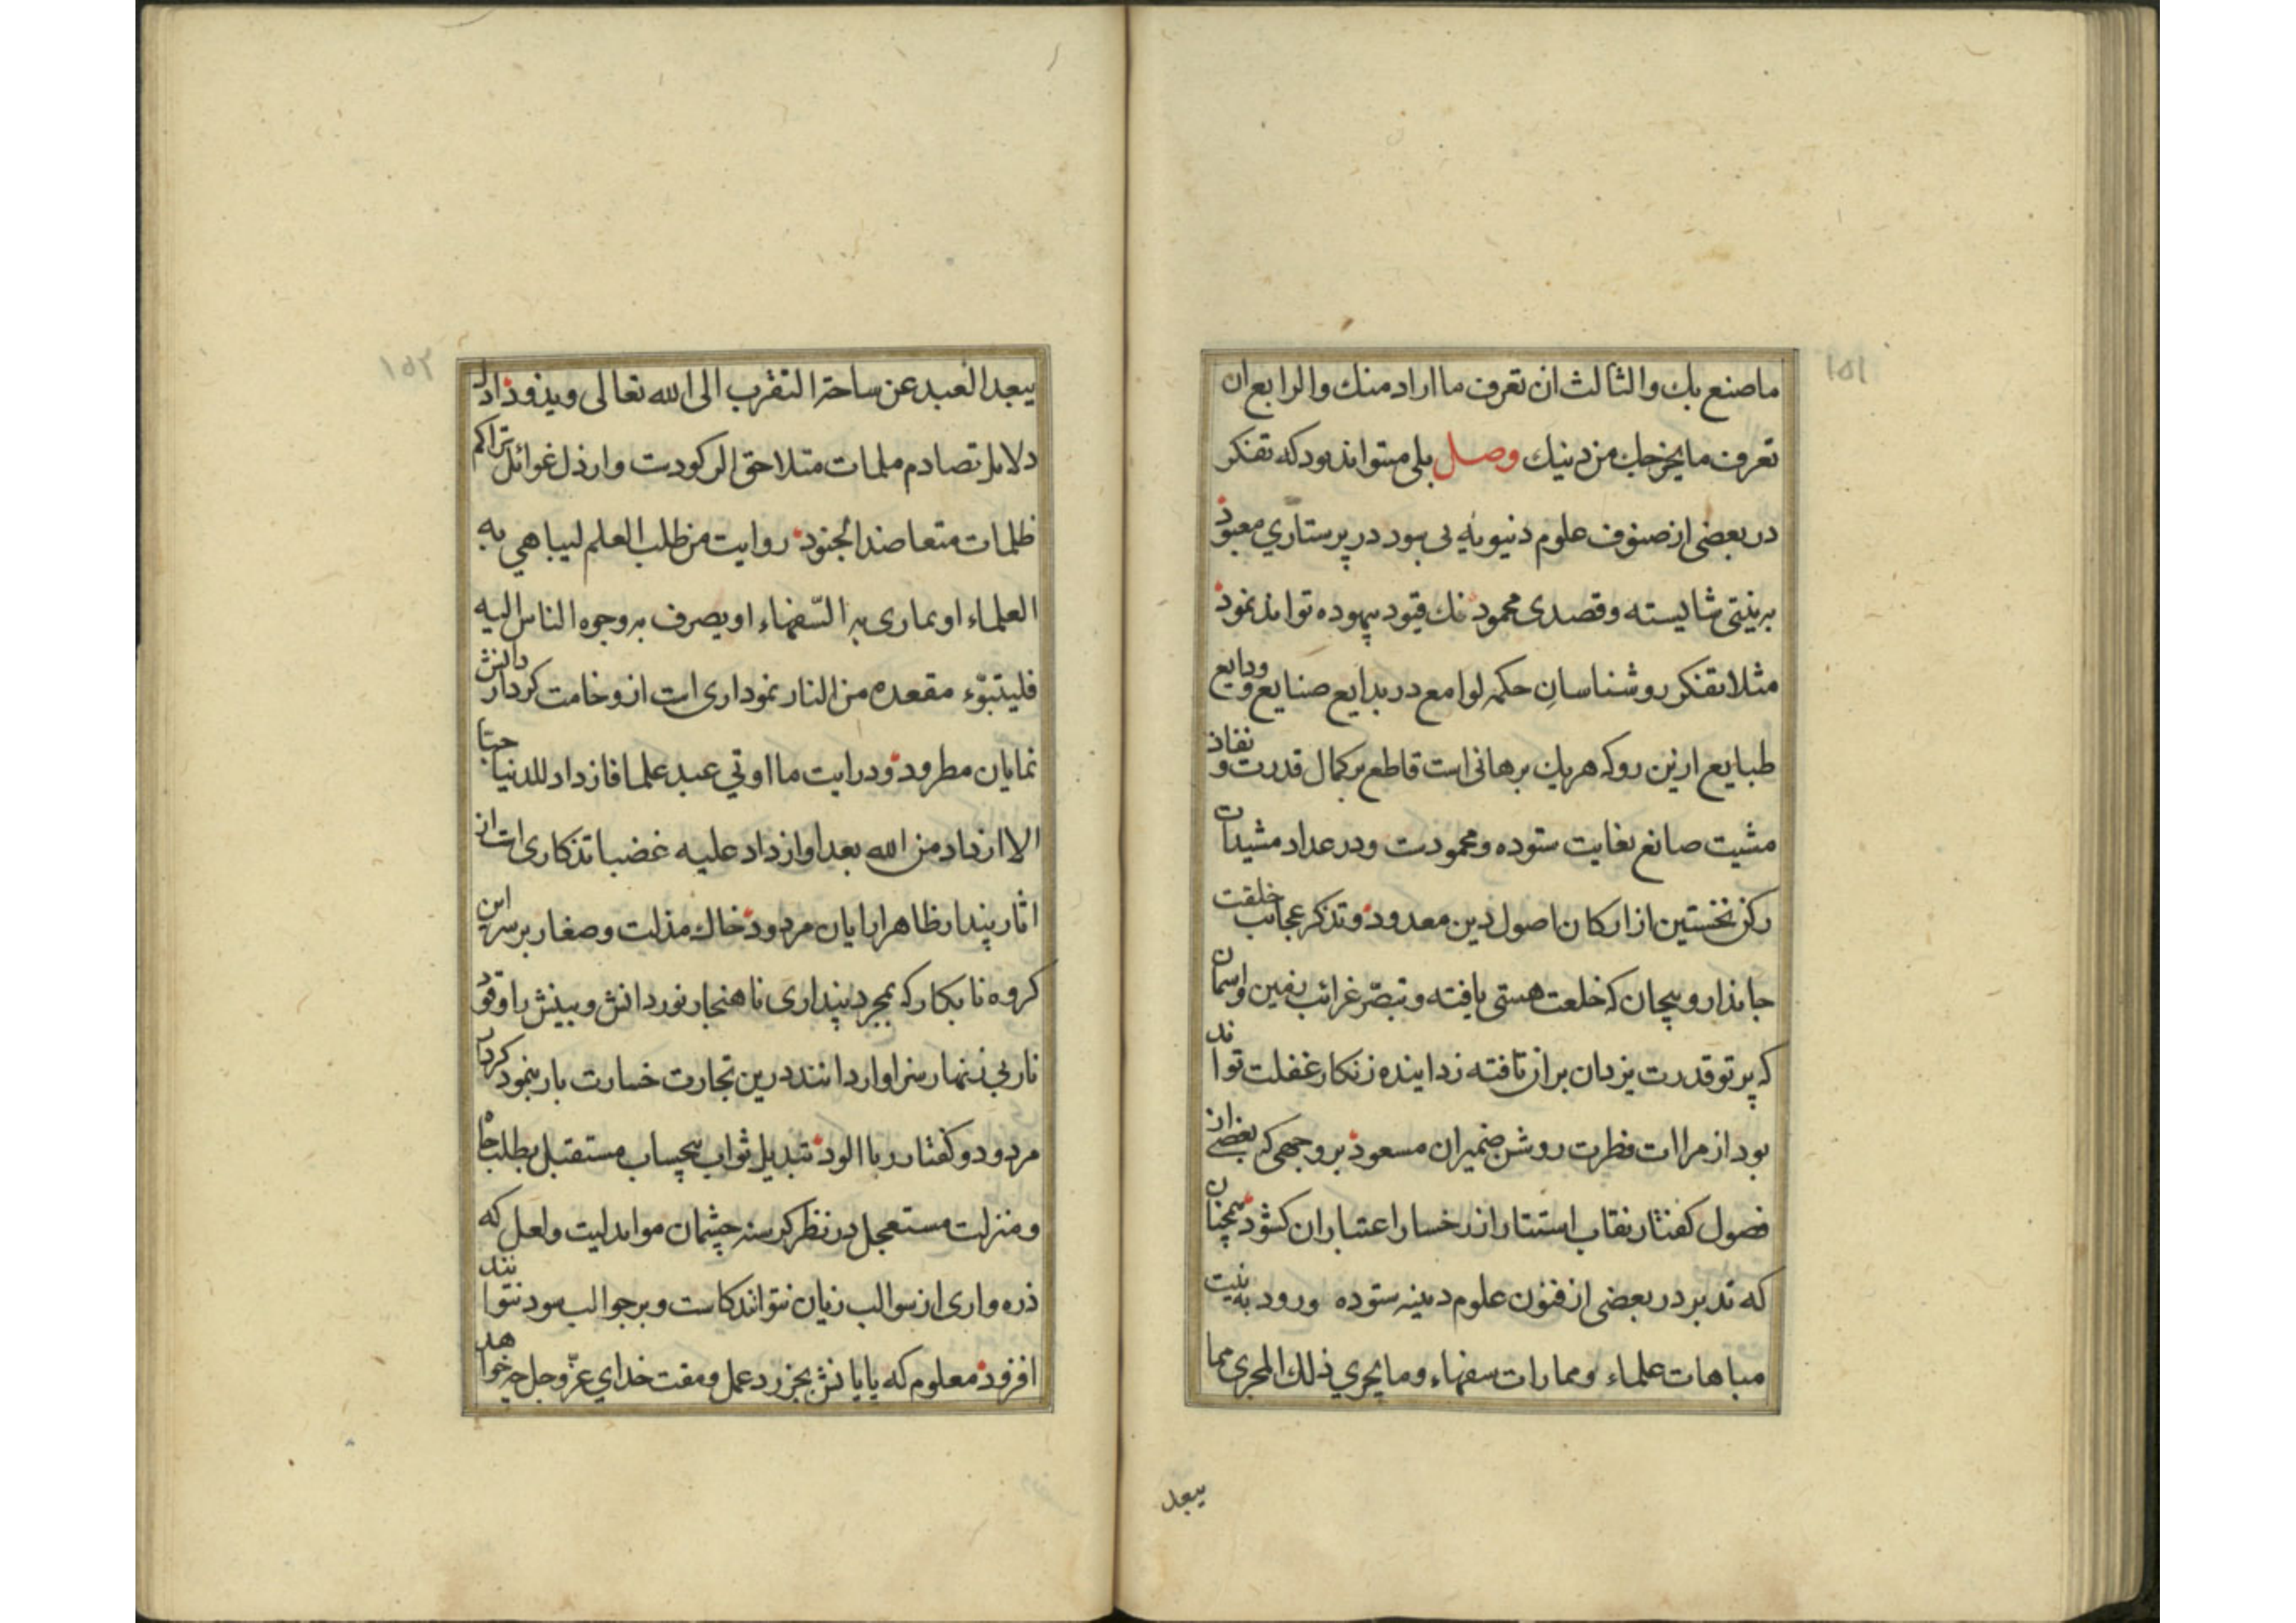 ١٥١
ما صنع بك والثالث ان تعرف ما اراد منك والرابع ان
تعرف ما يخرجك من دينك وصل بلی میتواند بود که تفکر
در بعضی از صنوف علوم دنیویه بی سود در پرستاری معبود
بر نیتی شایسته وقصدی محمود فك قیود بیهوده تواند نمود
مثلا تفکر روشناسان حکمه لوامع در بدایع صنایع و ودایع
طبایع ازین رو که هر یك برهانی است قاطع بر کمال قدرت و نفاذ
مشیت صانع بغایت ستوده و محمودت ودر عداد مشیدان
رکن نخستین از ارکان اصول دین معدود وتذکر عجائب خلقت
جاندار و بیجان که خلعت هستی یافته و تبصّر غرائب زمین و اسمان
که پرتو قدرت یزدان بران تافته زداینده زنکار غفلت تواند
بود از مرات فطرت روشن ضمیران مسعود بر وجهی که بعضی از
فصول کفتار نقاب استتار از رخسار اعتبار ان کشود همچنان
که تدبر در بعضی از فنون علوم دینیه ستوده ورود به نیت
مباهات علماء وممارات سفهاء وما يجري ذلك المجرى مما
يبعد
١٥٢
يبعد العبد عن ساحة التقرب الى الله تعالى
دلایل تصادم ملمات متلاحق الرکودت وارذل غوائل تراکم
ظلمات متعاضد الجنود روایت من طلب العلم ليباهي به
العلماء او يماري به السّفهاء او يصرف به وجوه الناس اليه
فليتبوّء مقعده من النار نموداری است از وخامت کردار دانش
نمایان مطرود ودرایت ما اوتي عبد علما فازداد للدنيا حبّا
الا ازداد من الله بعدا وازداد عليه غضبا تذکاری است از
اثار پندار ظاهر ارایان مردود خاك مذلت وصغار بر سر این
کروه نابکار که بمجرد پنداری ناهنجار نور دانش و بینش را وقود
نار بی زنهار سزاوار دانند درین تجارت خسارت بار بنمود کردار
مردود و کفتار ریا الود تبدیل ثواب بیحساب مستقبل بطلب جاه
ومنزلت مستعجل در نظر کرسنه چشمان موایدلیت ولعل که
ذره واری از سوالب زیان نتوانند کاست وبر جوالب سود نتوانند
افزود معلوم که پایانش بجز رد عمل ومقت خدای عزّ وجل چه خواهد